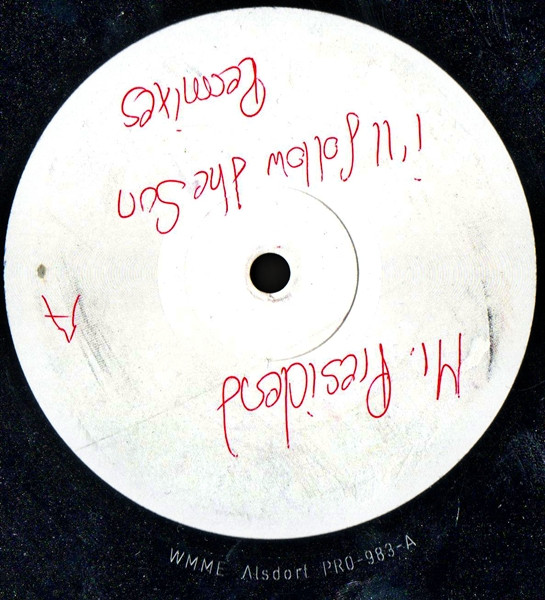 Mr. President
i'll follow the Sun
Remixes
A
WMME Alsdorf PRO-983-A